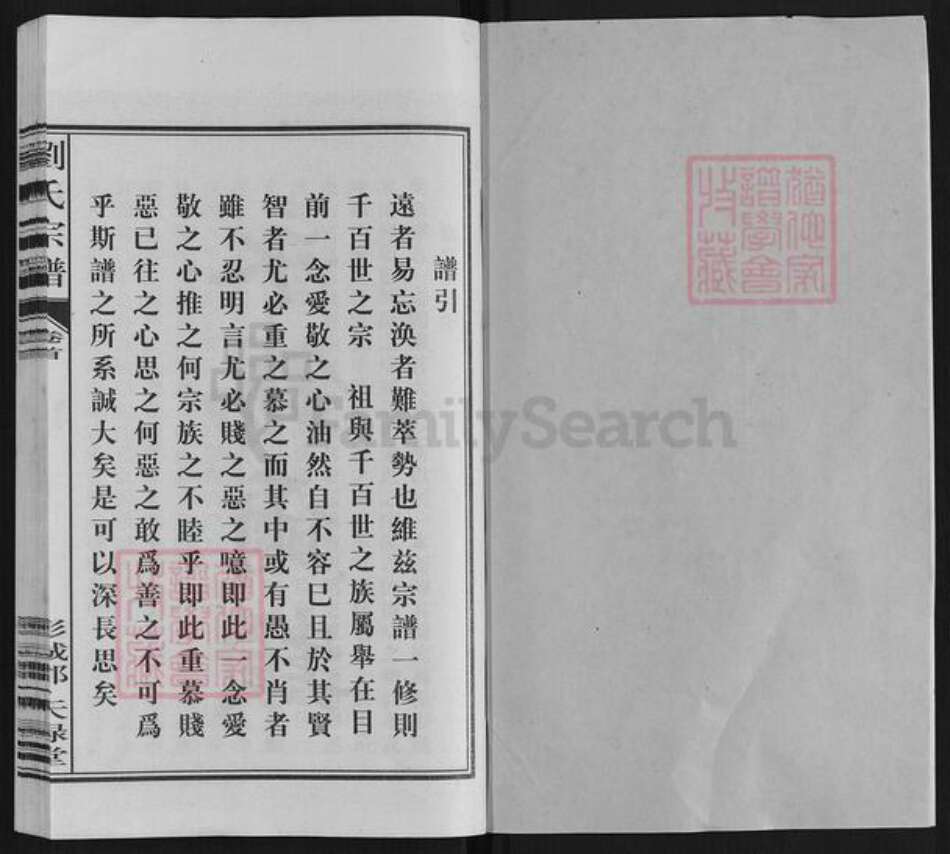 譜引
遠者易忘渙者難萃勢也維茲宗譜一修則
千百世之宗 祖與千百世之族屬舉在目
前一念愛敬之心油然自不容巳且於其賢
智者尤必重之慕之而其中或有愚不肖者
雖不忍明言尤必賤之惡之噫即此一念愛
敬之心推之何宗族之不睦乎即此重慕賤
惡已往之心思之何惡之敢爲善之不可爲
乎斯譜之所系誠大矣是可以深長思矣
劉氏宗譜
卷首
彭城郡 天祿堂
FamilySearch